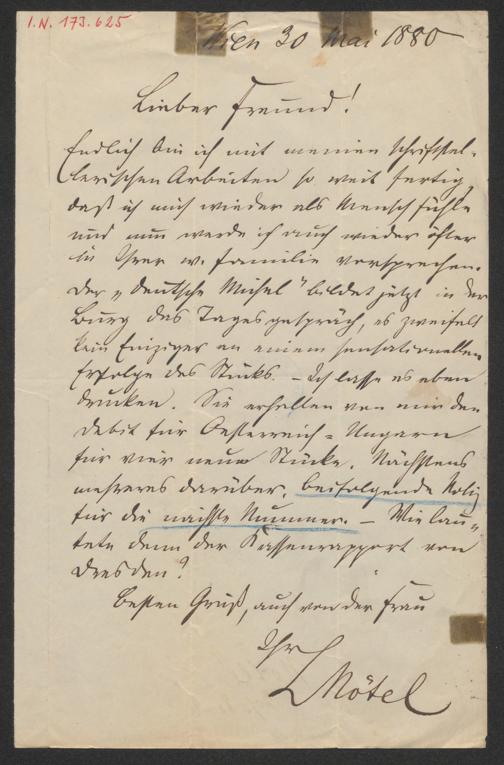 I.N. 173.625
Wien 30 Mai 1880
Lieber Freund!
Endlich bin ich mit meinen schriftstel-
lerischen Arbeiten so weit fertig,
daß ich mich wieder als Mensch fühle
und nun werde ich auch wieder öfter
in Ihrer w. Familie vorsprechen.
Der „deutsche Michel" bildet jetzt in der
Burg das Tagesgespräch, es zweifelt
kein Einziger an einem sensationellen
Erfolge des Stücks. – Ich lasse es eben
drucken. Sie erhalten von mir den
Debit für Oesterreich-Ungarn
für vier neue Stücke. Nächstens
mehreres darüber. Beifolgende Notiz
für die nächste Nummer. – Wie lau-
tete denn der Kassenrapport von
Dresden?
Besten Gruß, auch von der Frau
Ihr